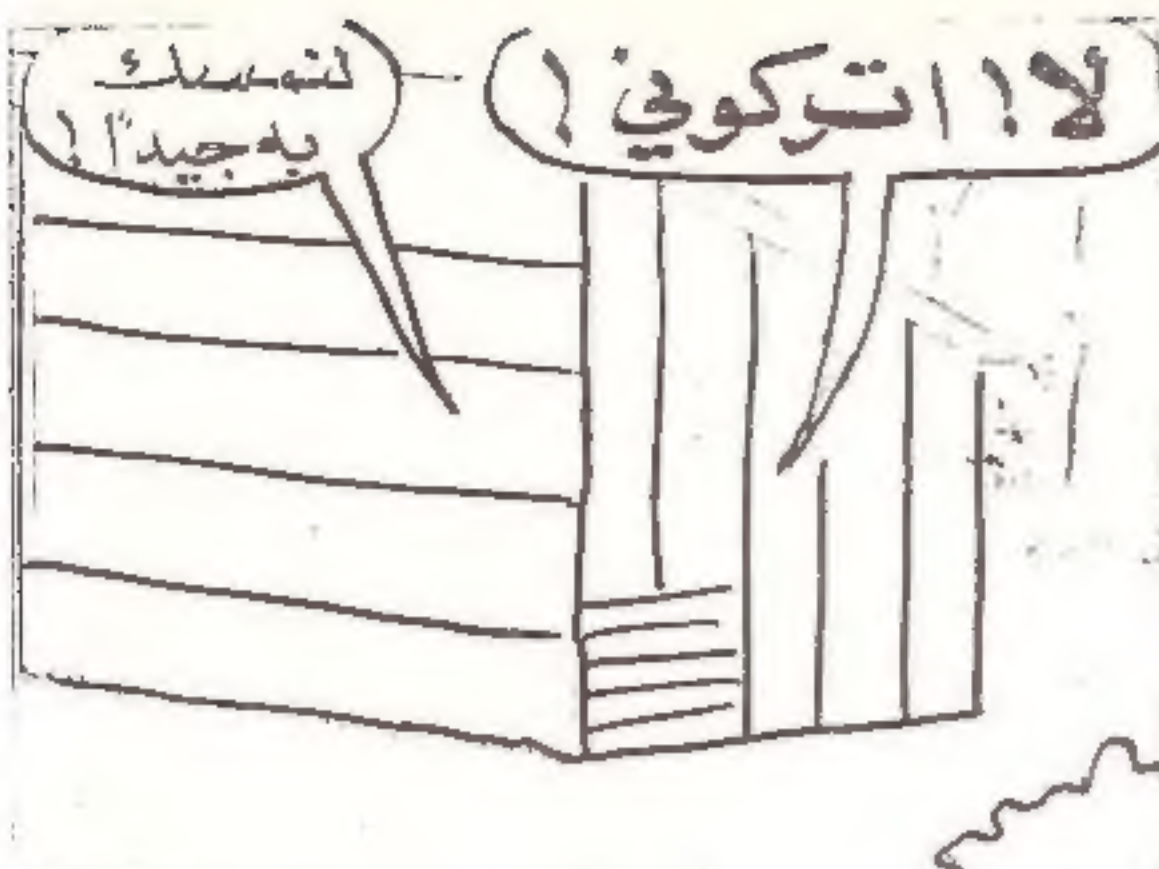 لا! اتركوني!
لنمسك
به جيداً!